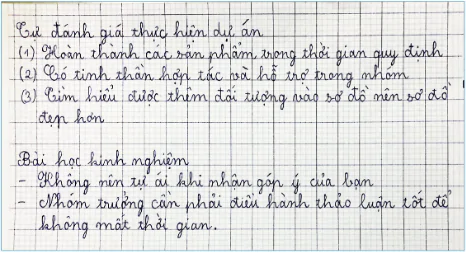 Tự đánh giá thực hiện dự án
(1) Hoàn thành các sản phẩm trong thời gian quy định
(2) Có tinh thần hợp tác và hỗ trợ trong nhóm
(3) Tìm hiểu được thêm đối tượng vào sơ đồ nên sơ đồ
đẹp hơn
Bài học kinh nghiệm
- Không nên tự ái khi nhận góp ý của bạn
- Nhóm trưởng cần phải điều hành thảo luận tốt để
không mất thời gian.